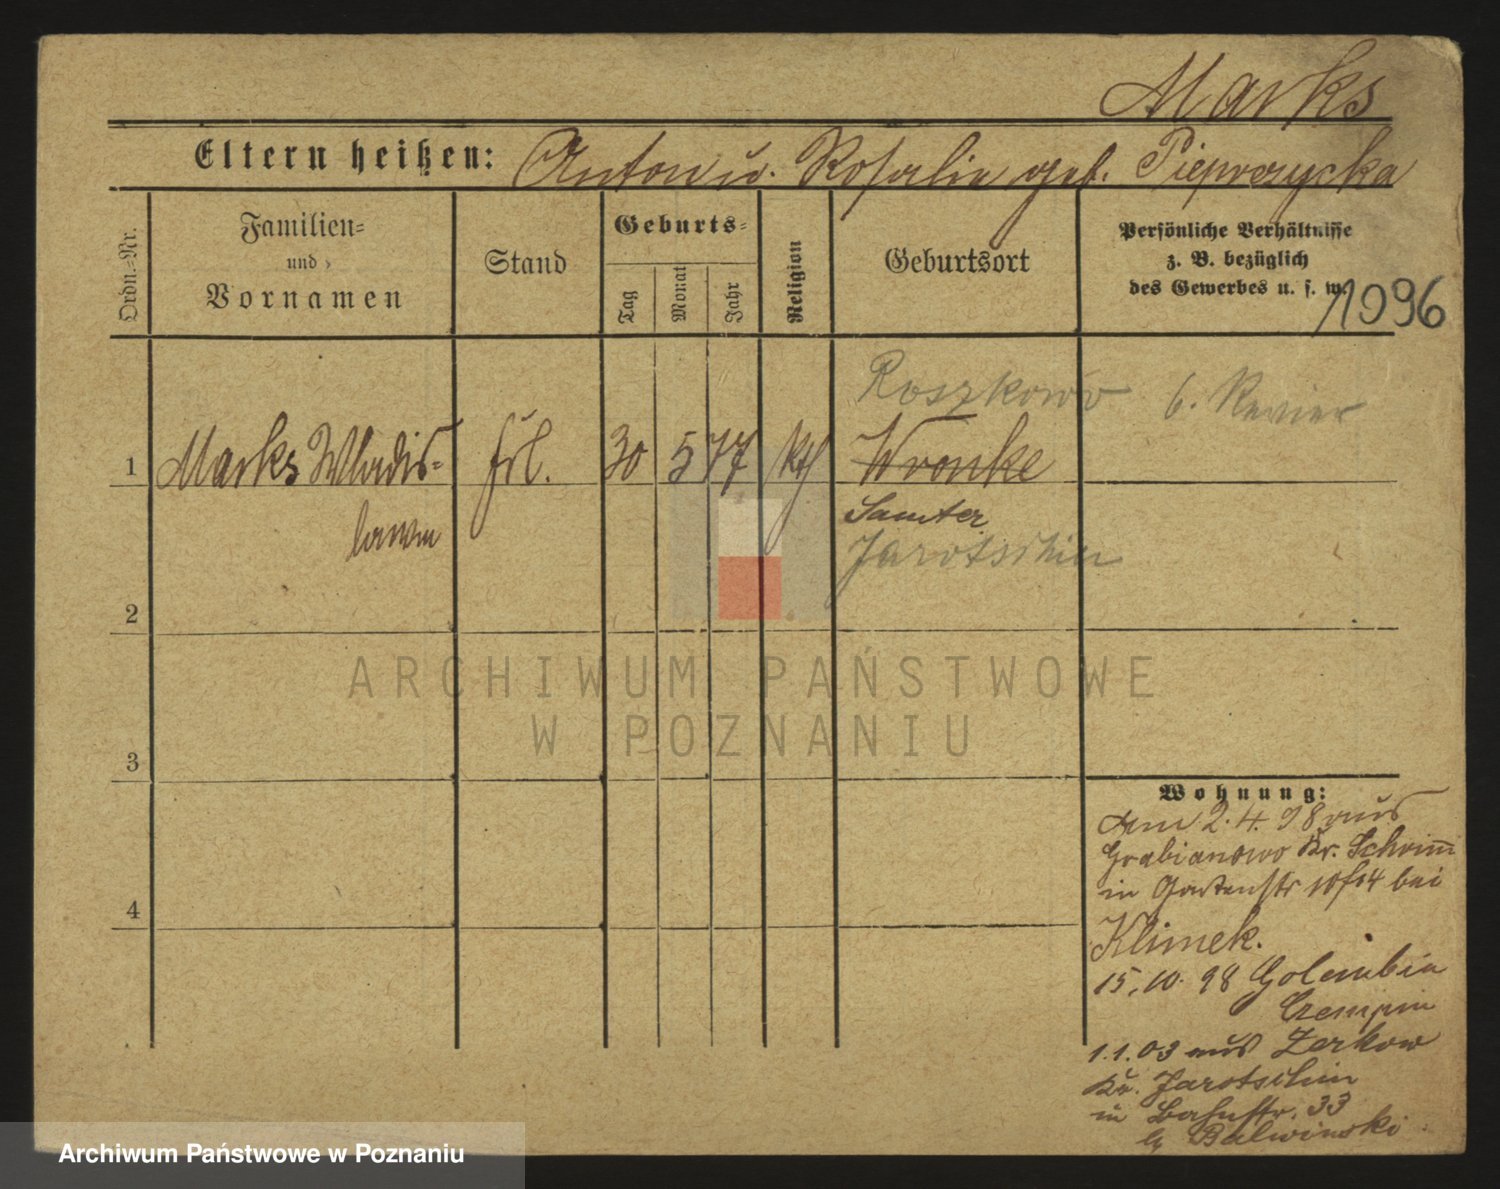 Marks
Eltern heißen: Anton u. Rosalie geb. Pieprzycka
Ordn.-Nr.
Familien-
und
Vornamen
Stand
Geburts-
Tag
Monat
Jahr
Religion
Geburtsort
Persönliche Verhältnisse
z. B. bezüglich
des Gewerbes u. s. w.
1096
Roszkowo 6. Revier
1 Marks Wladis- frl. 30 5 77 kth Wronke
lawa
Samter
Jarotschin
2
3
4
Wohnung:
Am 2.4.98 aus
Grabianowo Kr. Schrimm
in Gartenstr 10/14 bei
Klimek.
15.10.98 Golembin
Czempin
1.1.03 aus Zerkow
Kr. Jarotschin
in Bahnstr. 33
b Balwinski.
ARCHIWUM PAŃSTWOWE
W POZNANIU
Archiwum Państwowe w Poznaniu